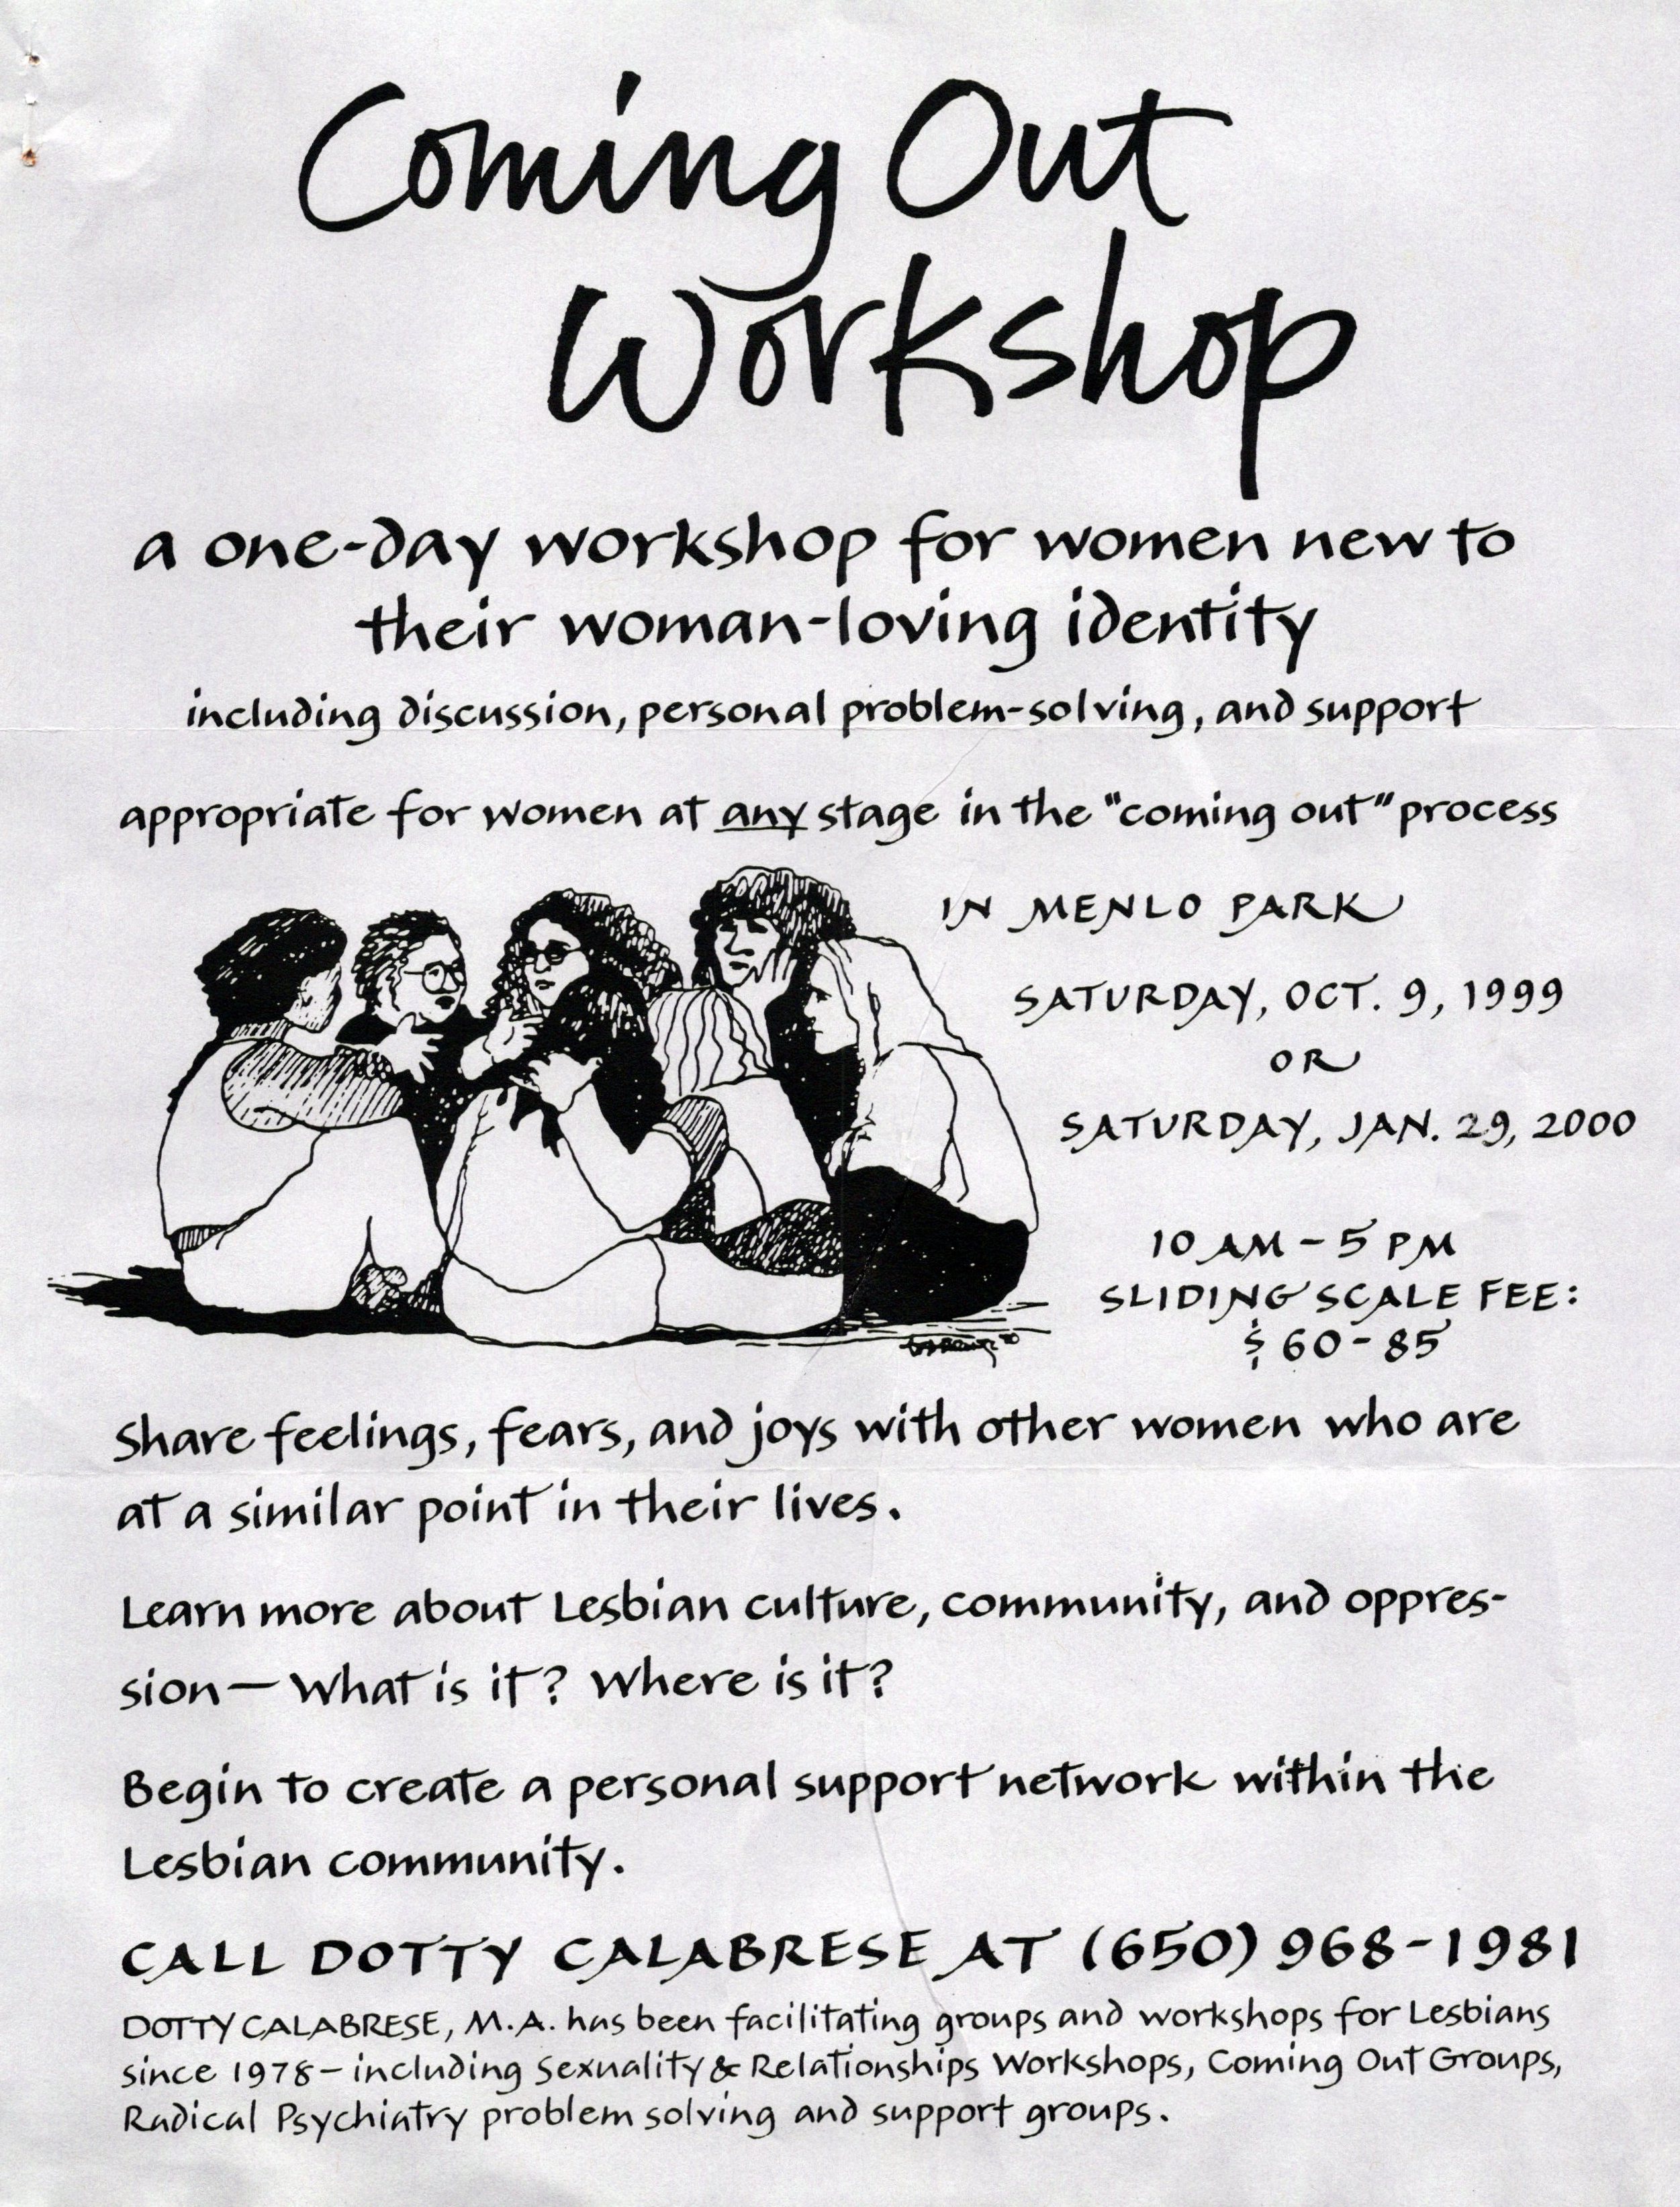 Coming Out
Workshop
a one-day workshop for women new to
their woman-loving identity
including discussion, personal problem-solving, and support
appropriate for women at any stage in the "coming out" process
IN MENLO PARK
SATURDAY, OCT. 9, 1999
OR
SATURDAY, JAN. 29, 2000
10 AM - 5 PM
SLIDING SCALE FEE:
$ 60 - 85
Share feelings, fears, and joys with other women who are
at a similar point in their lives.
Learn more about Lesbian culture, community, and oppres-
sion — What is it? Where is it?
Begin to create a personal support network within the
Lesbian community.
CALL DOTTY CALABRESE AT (650) 968-1981
DOTTY CALABRESE, M.A. has been facilitating groups and workshops for Lesbians
since 1978 - including Sexuality & Relationships Workshops, Coming Out Groups,
Radical Psychiatry problem solving and support groups.